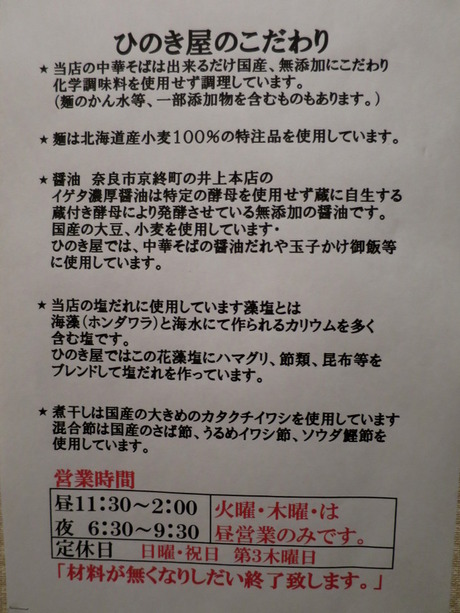 ひのき屋のこだわり
★ 当店の中華そばは出来るだけ国産、無添加にこだわり
化学調味料を使用せず調理しています。
(麺のかん水等、一部添加物を含むものもあります。)
★ 麺は北海道産小麦100%の特注品を使用しています。
★ 醤油 奈良市京終町の井上本店の
イゲタ濃厚醤油は特定の酵母を使用せず蔵に自生する
蔵付き酵母により発酵させている無添加の醤油です。
国産の大豆、小麦を使用しています・
ひのき屋では、中華そばの醤油だれや玉子かけ御飯等
に使用しています。
★ 当店の塩だれに使用しています藻塩とは
海藻(ホンダワラ)と海水にて作られるカリウムを多く
含む塩です。
ひのき屋ではこの花藻塩にハマグリ、節類、昆布等を
ブレンドして塩だれを作っています。
★ 煮干しは国産の大きめのカタクチイワシを使用しています
混合節は国産のさば節、うるめイワシ節、ソウダ鰹節を
使用しています。
営業時間
昼11:30～2:00
夜 6:30～9:30
火曜・木曜・は
昼営業のみです。
定休日 日曜・祝日 第3木曜日
「材料が無くなりしだい終了致します。」